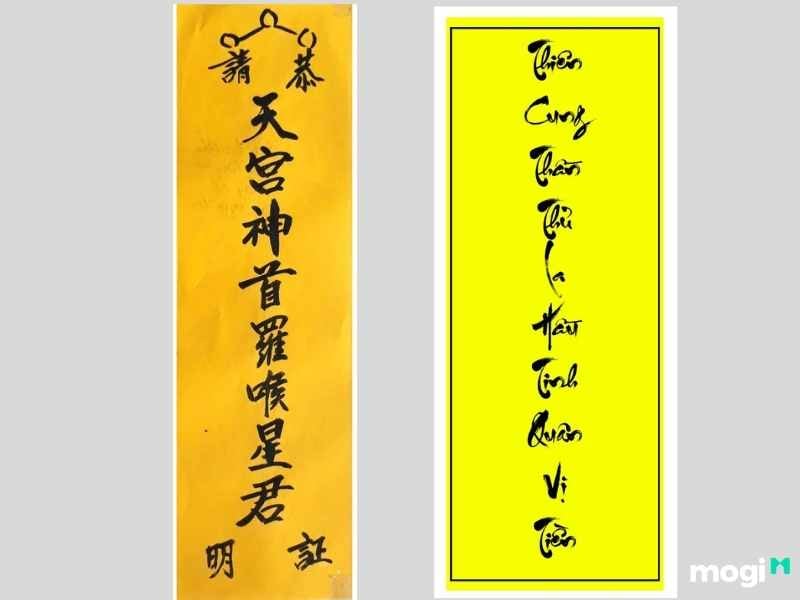 恭請
天宮神首羅喉星君
証明
Thiên
Cung
Thần
Thủ
La
Hầu
Tinh
Quân
Vị
Tiền
mogi